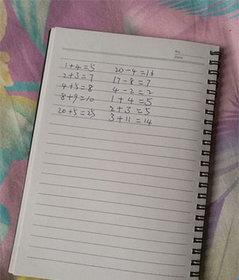 1+4=5
2+3=7
4+3=8
8+9=10
20+5=25
20-4=16
17-8=7
4-2=2
1+4=5
2+3=5
3+11=14